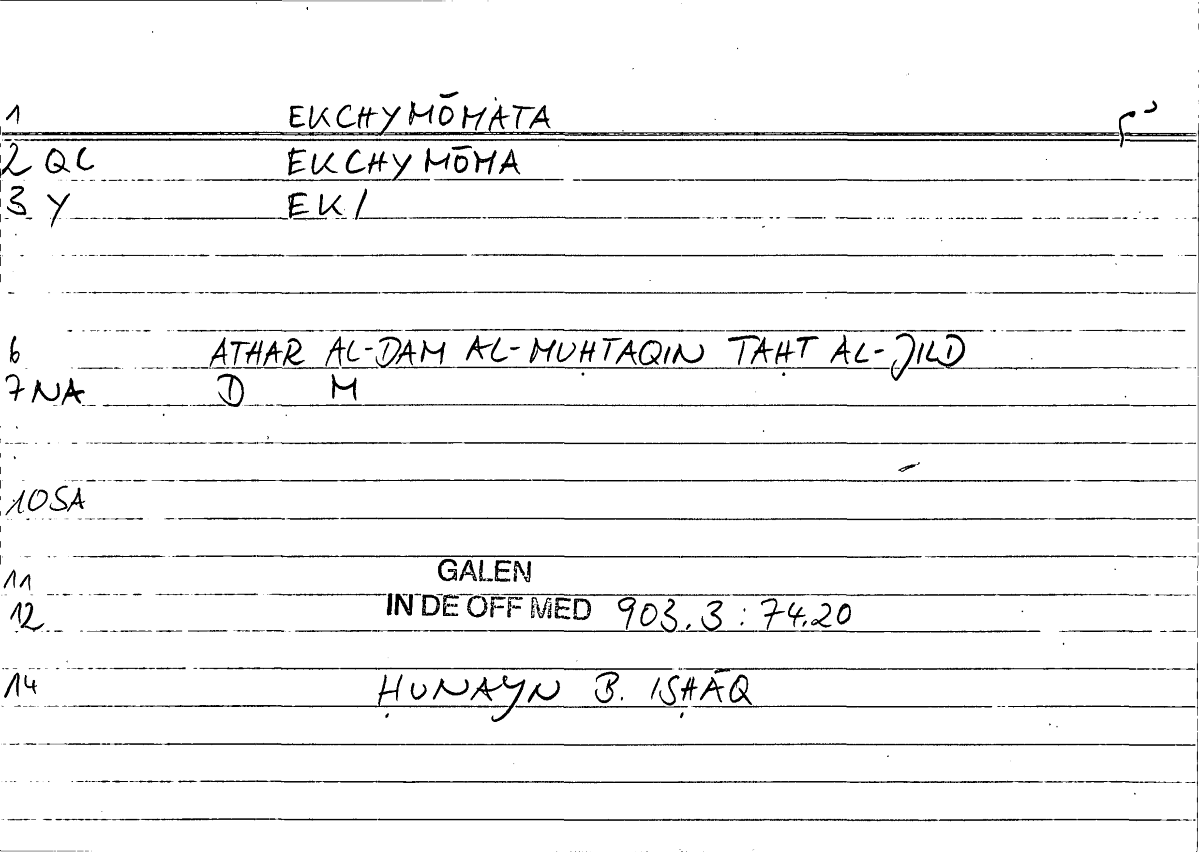 1 EKCHYMŌMATA
2 QC EKCHYMŌMA
3 Y EK/
6 ATHAR AL-DAM AL-MUḤTAQIN TAḤT AL-JILD
7 NA D M
10 SA
11 GALEN
12 IN DE OFF MED 903.3 : 74.20
14 ḤUNAYN B. ISḤĀQ